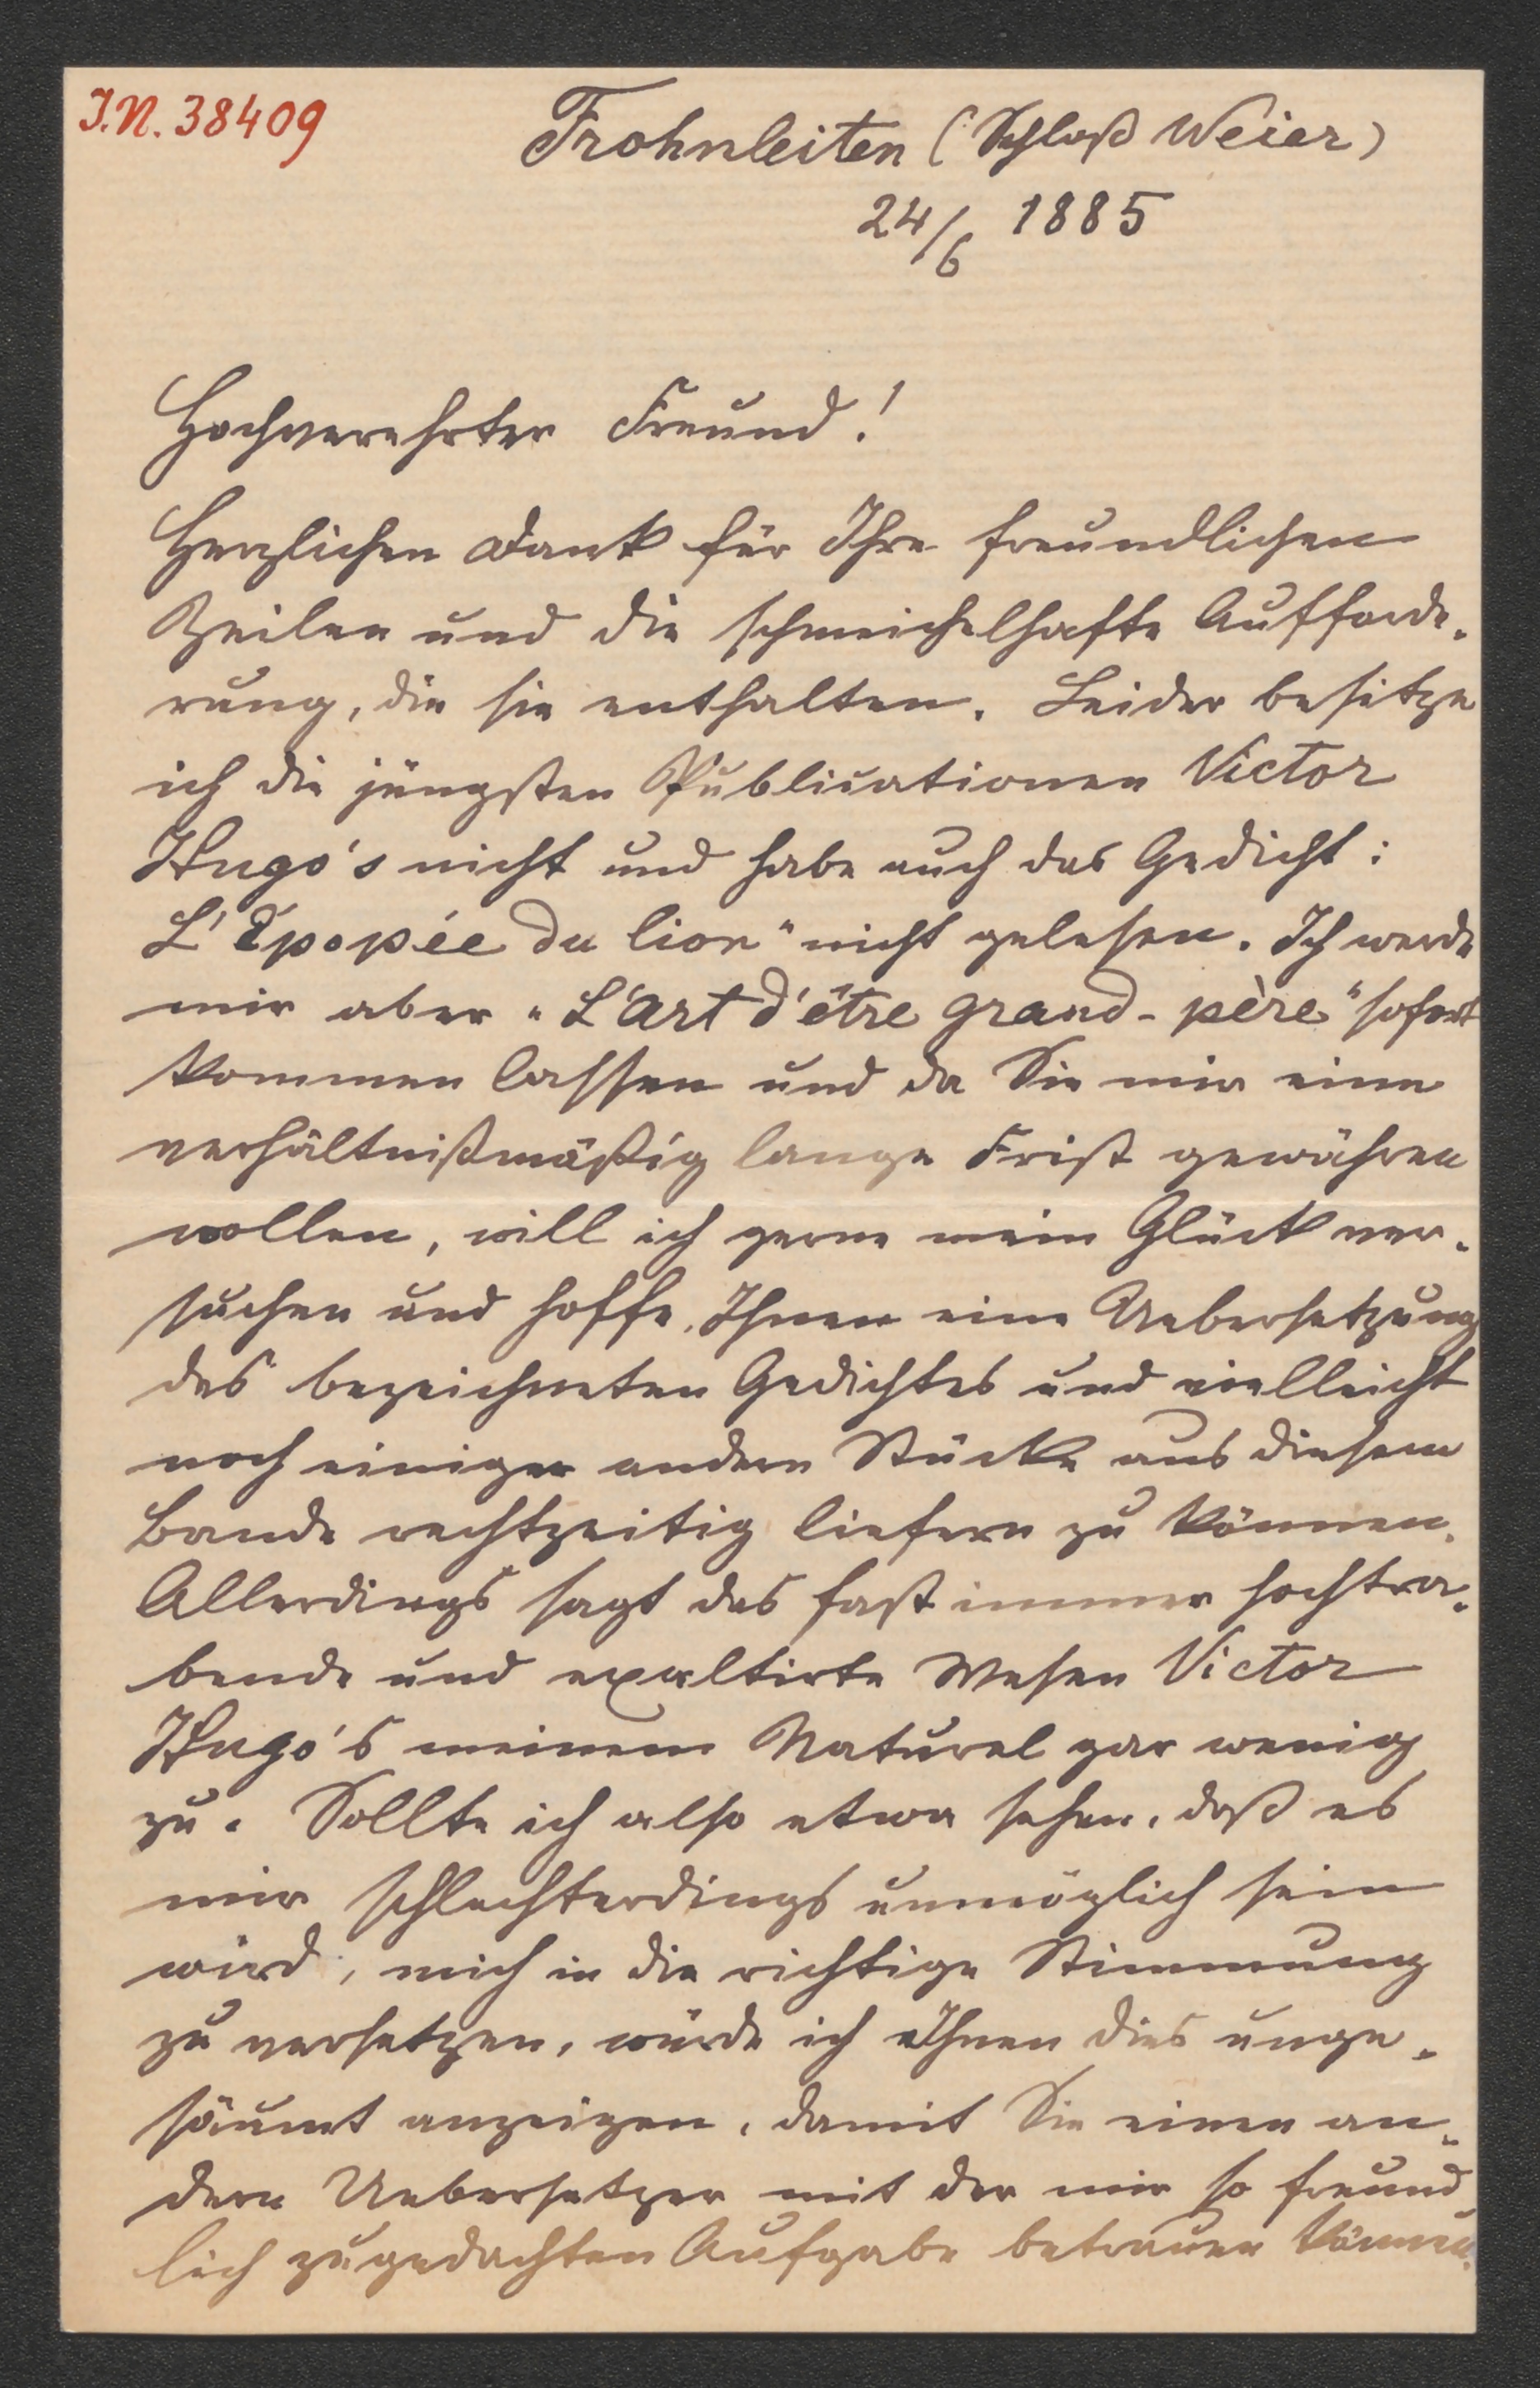 I.N. 38409
Frohnleiten (Schloß Weier)
24/6 1885
Hochverehrter Freund!
Herzlichen Dank für Ihre freundlichen
Zeilen und die schmeichelhafte Aufforde-
rung, die sie enthalten. Leider besitze
ich die jüngsten Publicationen Victor
Hugo's nicht und habe auch das Gedicht:
L'Épopée du lion" nicht gelesen. Ich werde
mir aber "L'art d'être grand-père" sofort
kommen lassen und da Sie mir eine
verhältnißmäßig lange Frist gewähren
wollen, will ich gerne mein Glück ver-
suchen und hoffe, Ihnen eine Uebersetzung
des bezeichneten Gedichtes und vielleicht
noch einiger andern Stücke aus diesem
Bande rechtzeitig liefern zu können.
Allerdings sagt das fast immer hochtra-
bende und exaltirte Wesen Victor
Hugo's meinem Naturel gar wenig
zu. Sollte ich also etwa sehen, daß es
mir schlechterdings unmöglich sein
wird, mich in die richtige Stimmung
zu versetzen, würde ich Ihnen dies unge-
säumt anzeigen, damit Sie einen an-
dern Uebersetzer mit der mir so freund-
lich zugedachten Aufgabe betrauen können.